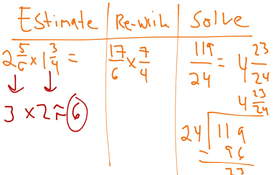 Estimate Re-write Solve
2 5/6 × 1 3/4 = 17/6 × 7/4 119/24 = 4 23/24
3 × 2 = 6 4 23/24
24 119
- 96
23